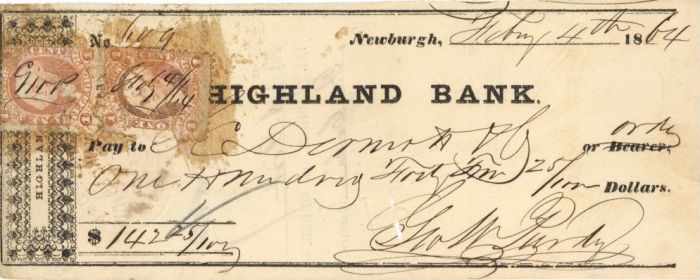 No 609 Newburgh, Feby 4th 1864
HIGHLAND BANK.
Pay to McDermott & Co or Bearer, order
One Hundred Forty Two 25/100 Dollars.
$ 142 25/100
Geo W Purdy
HIGHLAND
GWP